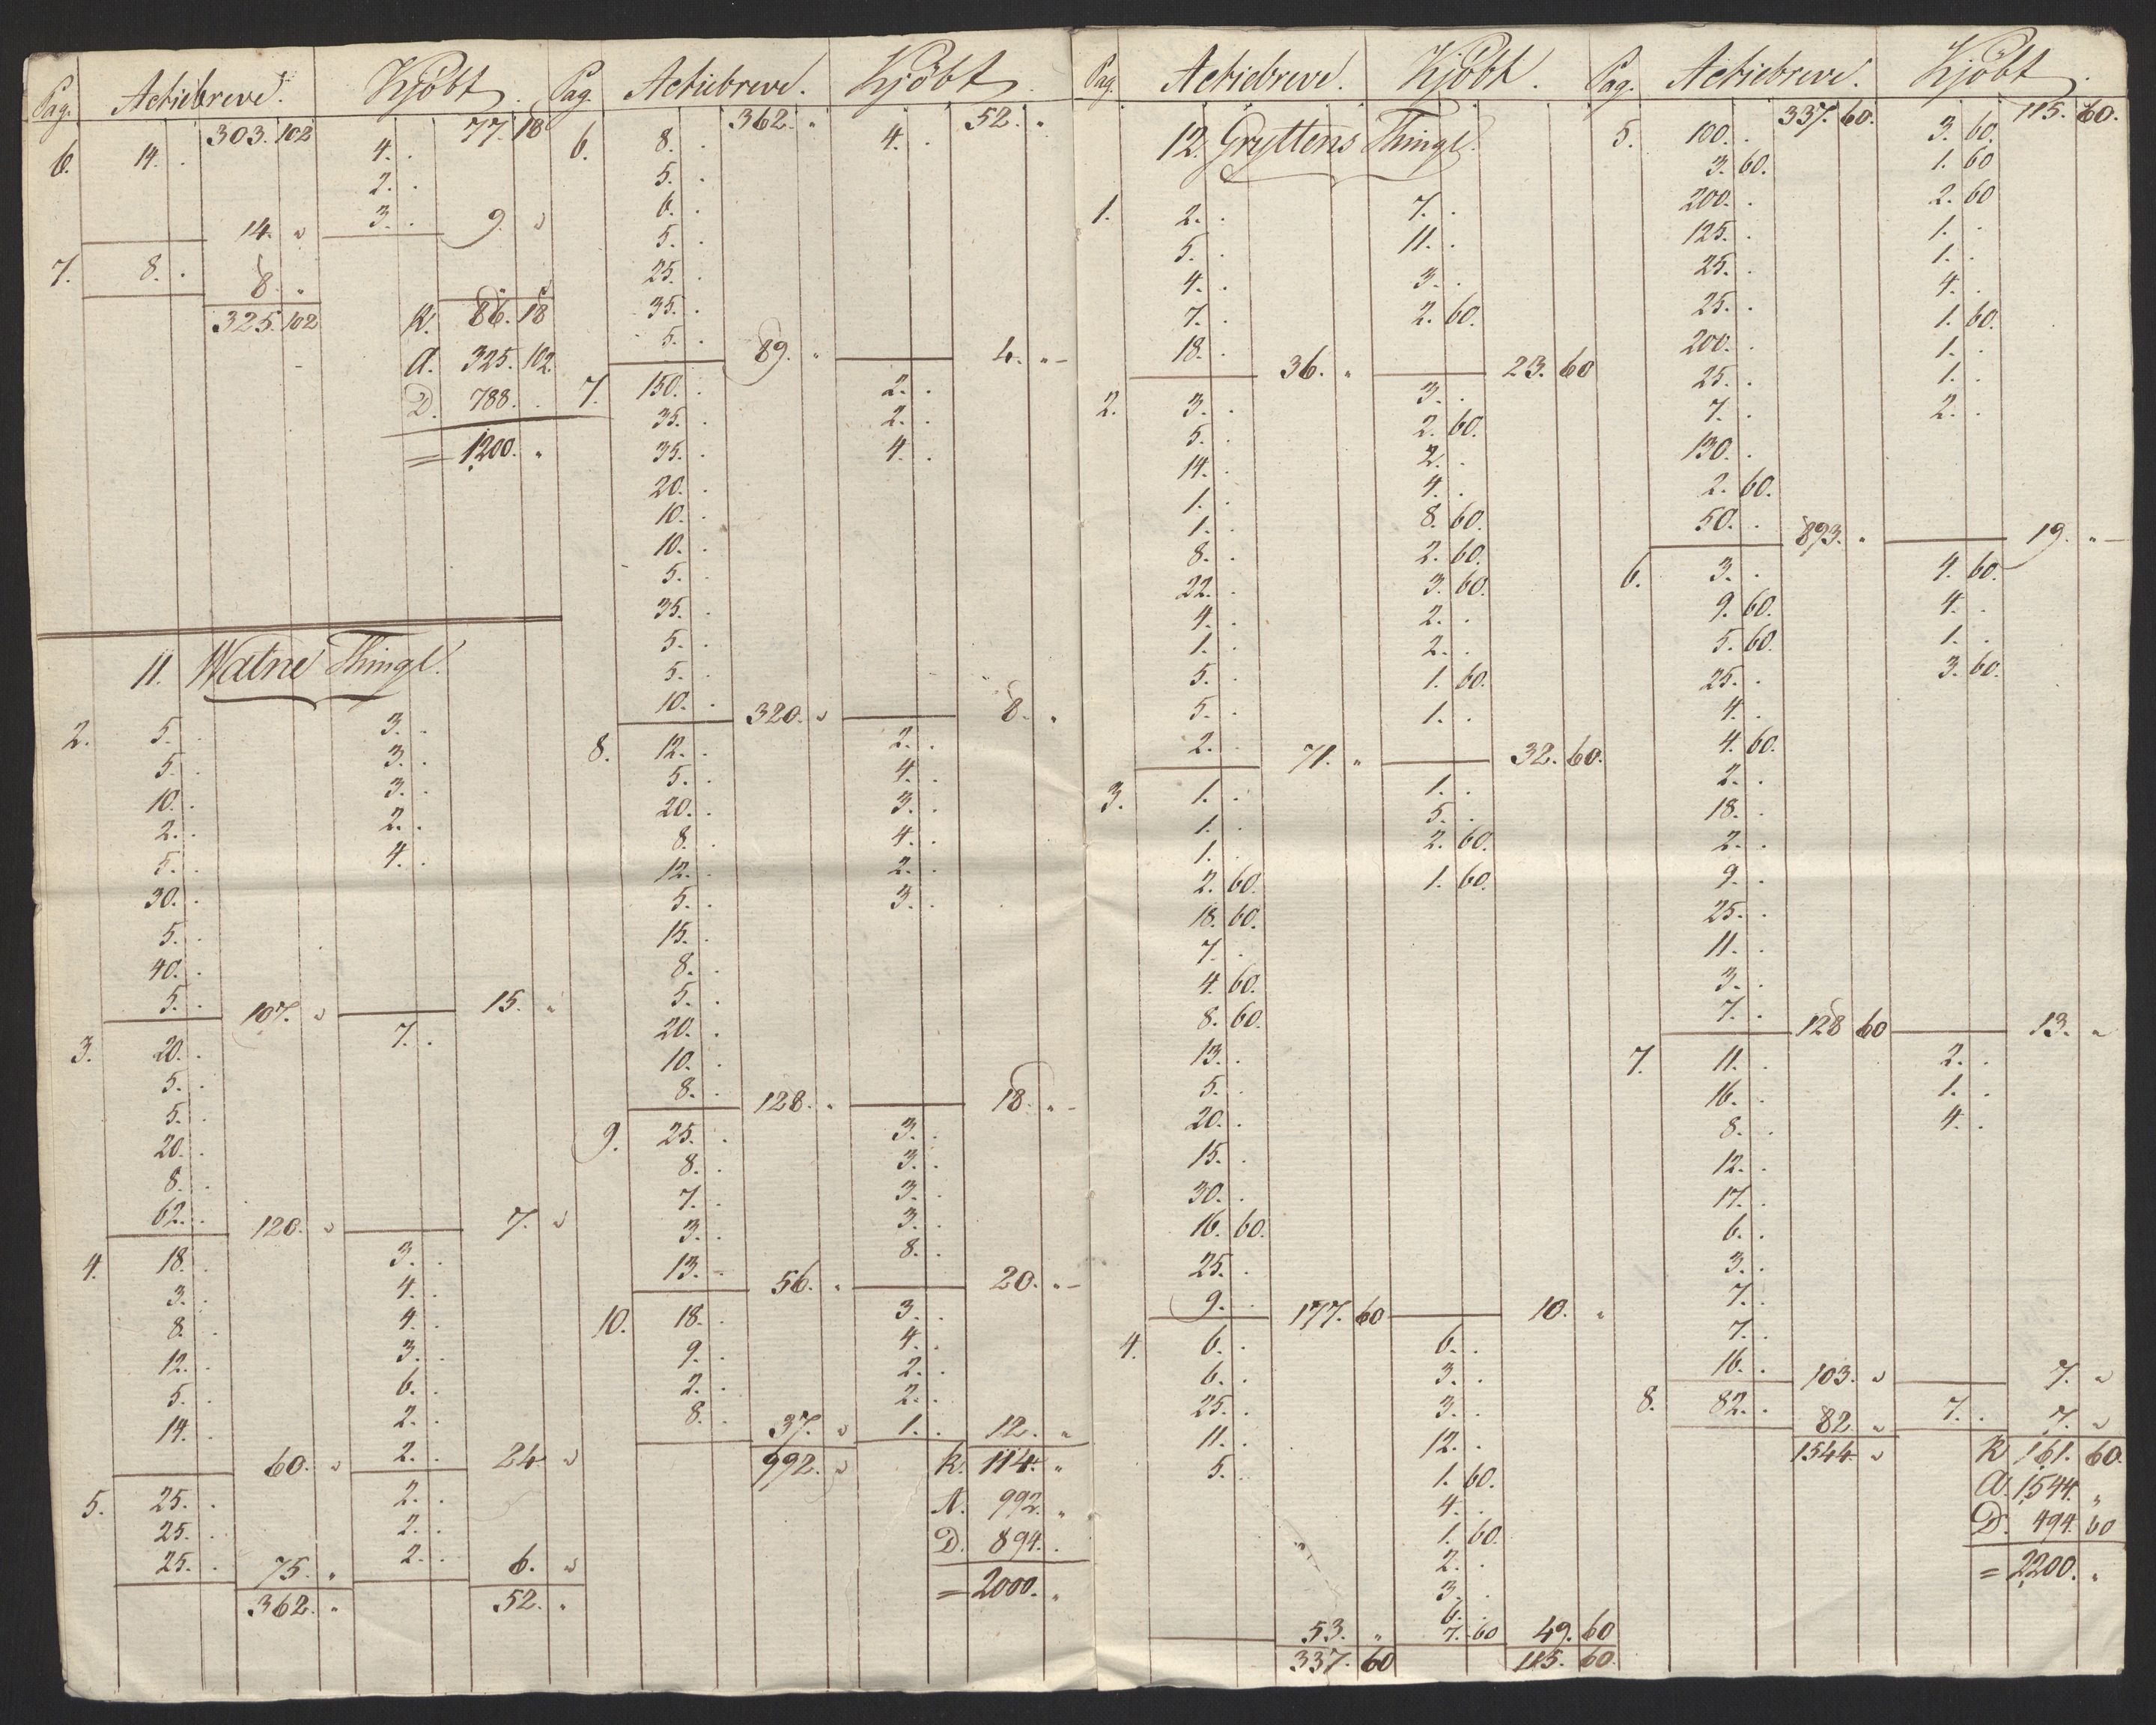 Pag. Actiebreve. Kjöbt.
303. 102 77. 18
6. 14. . 4. .
2. .
14. " 3. . 9. "
7. 8. .
8. "
325. 102 K. 86. 18
A. 325. 102.
D. 788. .
= 1200. "
11. Watne Thingl.
2. 5. . 3. .
5. . 3. .
10. . 3. .
2. . 2. .
5. . 4. .
30. .
5. .
40. .
5. . 107. " 15. "
3. 20. . 7. .
5. .
5. .
20. .
8. .
62. . 120. " 7. "
4. 18. . 3. .
3. . 4. .
8. . 4. .
12. . 3. .
5. . 6. .
14. . 2. .
60. " 2. . 24 "
5. 25. . 2. .
25. . 2. .
25. . 75. " 2. . 6. "
362. " 52. "
Pag. Actiebreve. Kjöbt.
362. " 52. "
6. 8. . 4. .
5. .
6. .
5. .
25. .
35. .
5. . 89. " 4. "
7. 150. . 2. .
35. . 2. .
35. . 4. .
20. .
10. .
10. .
5. .
35. .
5. .
5. .
10. . 320. " 8. "
8. 12. . 2. .
5. . 4. .
20. . 3. .
8. . 4. .
12. . 2. .
5. . 3. .
15. .
8. .
5. .
20. .
10. .
8. . 128. " 18. "
9. 25. . 3. .
8. . 3. .
7. . 3. .
3. . 3. .
13. . 8. .
56. " 20. "
10. 18. . 3. .
9. . 4. .
2. . 2. .
8. . 2. .
37. " 1. . 12. "
992. " K. 114. "
A. 992. "
D. 894. .
= 2000. "
Pag. Actiebreve. Kjöbt.
12. Gryttens Thingl.
1. 2. . 7. .
5. . 11. .
4. . 3. .
7. . 2. 60.
18. . 36. " 23. 60
2. 3. . 3. .
5. . 2. 60.
14. . 2. .
1. . 4. .
1. . 8. 60.
8. . 2. 60.
22. . 3. 60.
4. . 2. .
1. . 2. .
5. . 1. 60.
5. . 1. .
2. . 71. " 32. 60.
3. 1. . 1. .
1. . 5. .
1. . 2. 60.
2. 60. 1. 60.
18. 60.
7. .
4. 60.
8. 60.
13. .
5. .
20. .
15. .
30. .
16. 60.
25. .
9. . 177. 60 10. "
4. 6. . 6. .
6. . 3. .
25. . 3. .
11. . 12. .
5. . 1. 60.
4. .
1. 60.
2. .
3. .
6. .
53. " 7. 60 49. 60
337. 60 115. 60.
Pag. Actiebreve. Kjöbt.
337. 60. 115. 60.
5. 100. . 3. 60.
3. 60. 1. 60
200. . 2. 60
125. . 1. .
25. . 1. .
25. . 4. .
200. . 1. 60.
25. . 1. .
7. . 1. .
130. . 2. .
2. 60.
50. . 893. " 19. "
6. 3. . 4. 60.
9. 60. 4. .
5. 60. 1. .
25. . 3. 60.
4. .
4. 60.
2. .
18. .
2. .
9. .
25. .
11. .
3. .
7. . 128 60 13. "
7. 11. . 2. .
16. . 1. .
8. . 4. .
12. .
17. .
6. .
3. .
7. .
7. .
16. . 103. " 7. "
8. 82. . 7. .
82 " 7. "
1544 " K 161. 60.
A. 1544. "
D. 494. 60
= 2200. "